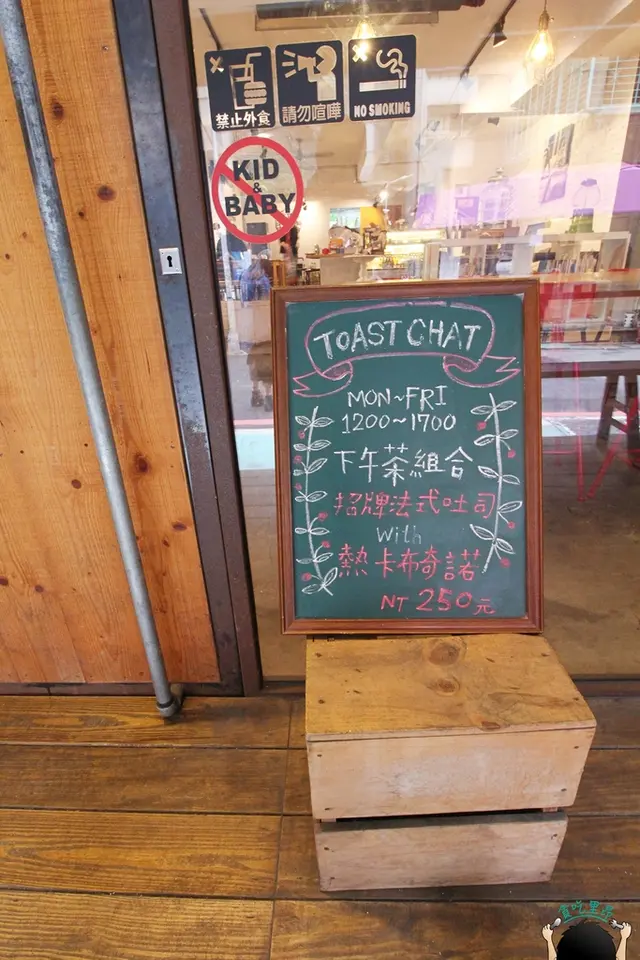 禁止外食
請勿喧嘩
NO SMOKING
KID
&
BABY
TOAST CHAT
MON~FRI
1200~1700
下午茶組合
招牌法式吐司
with
熱卡布奇諾
NT 250元
貪吃里弄